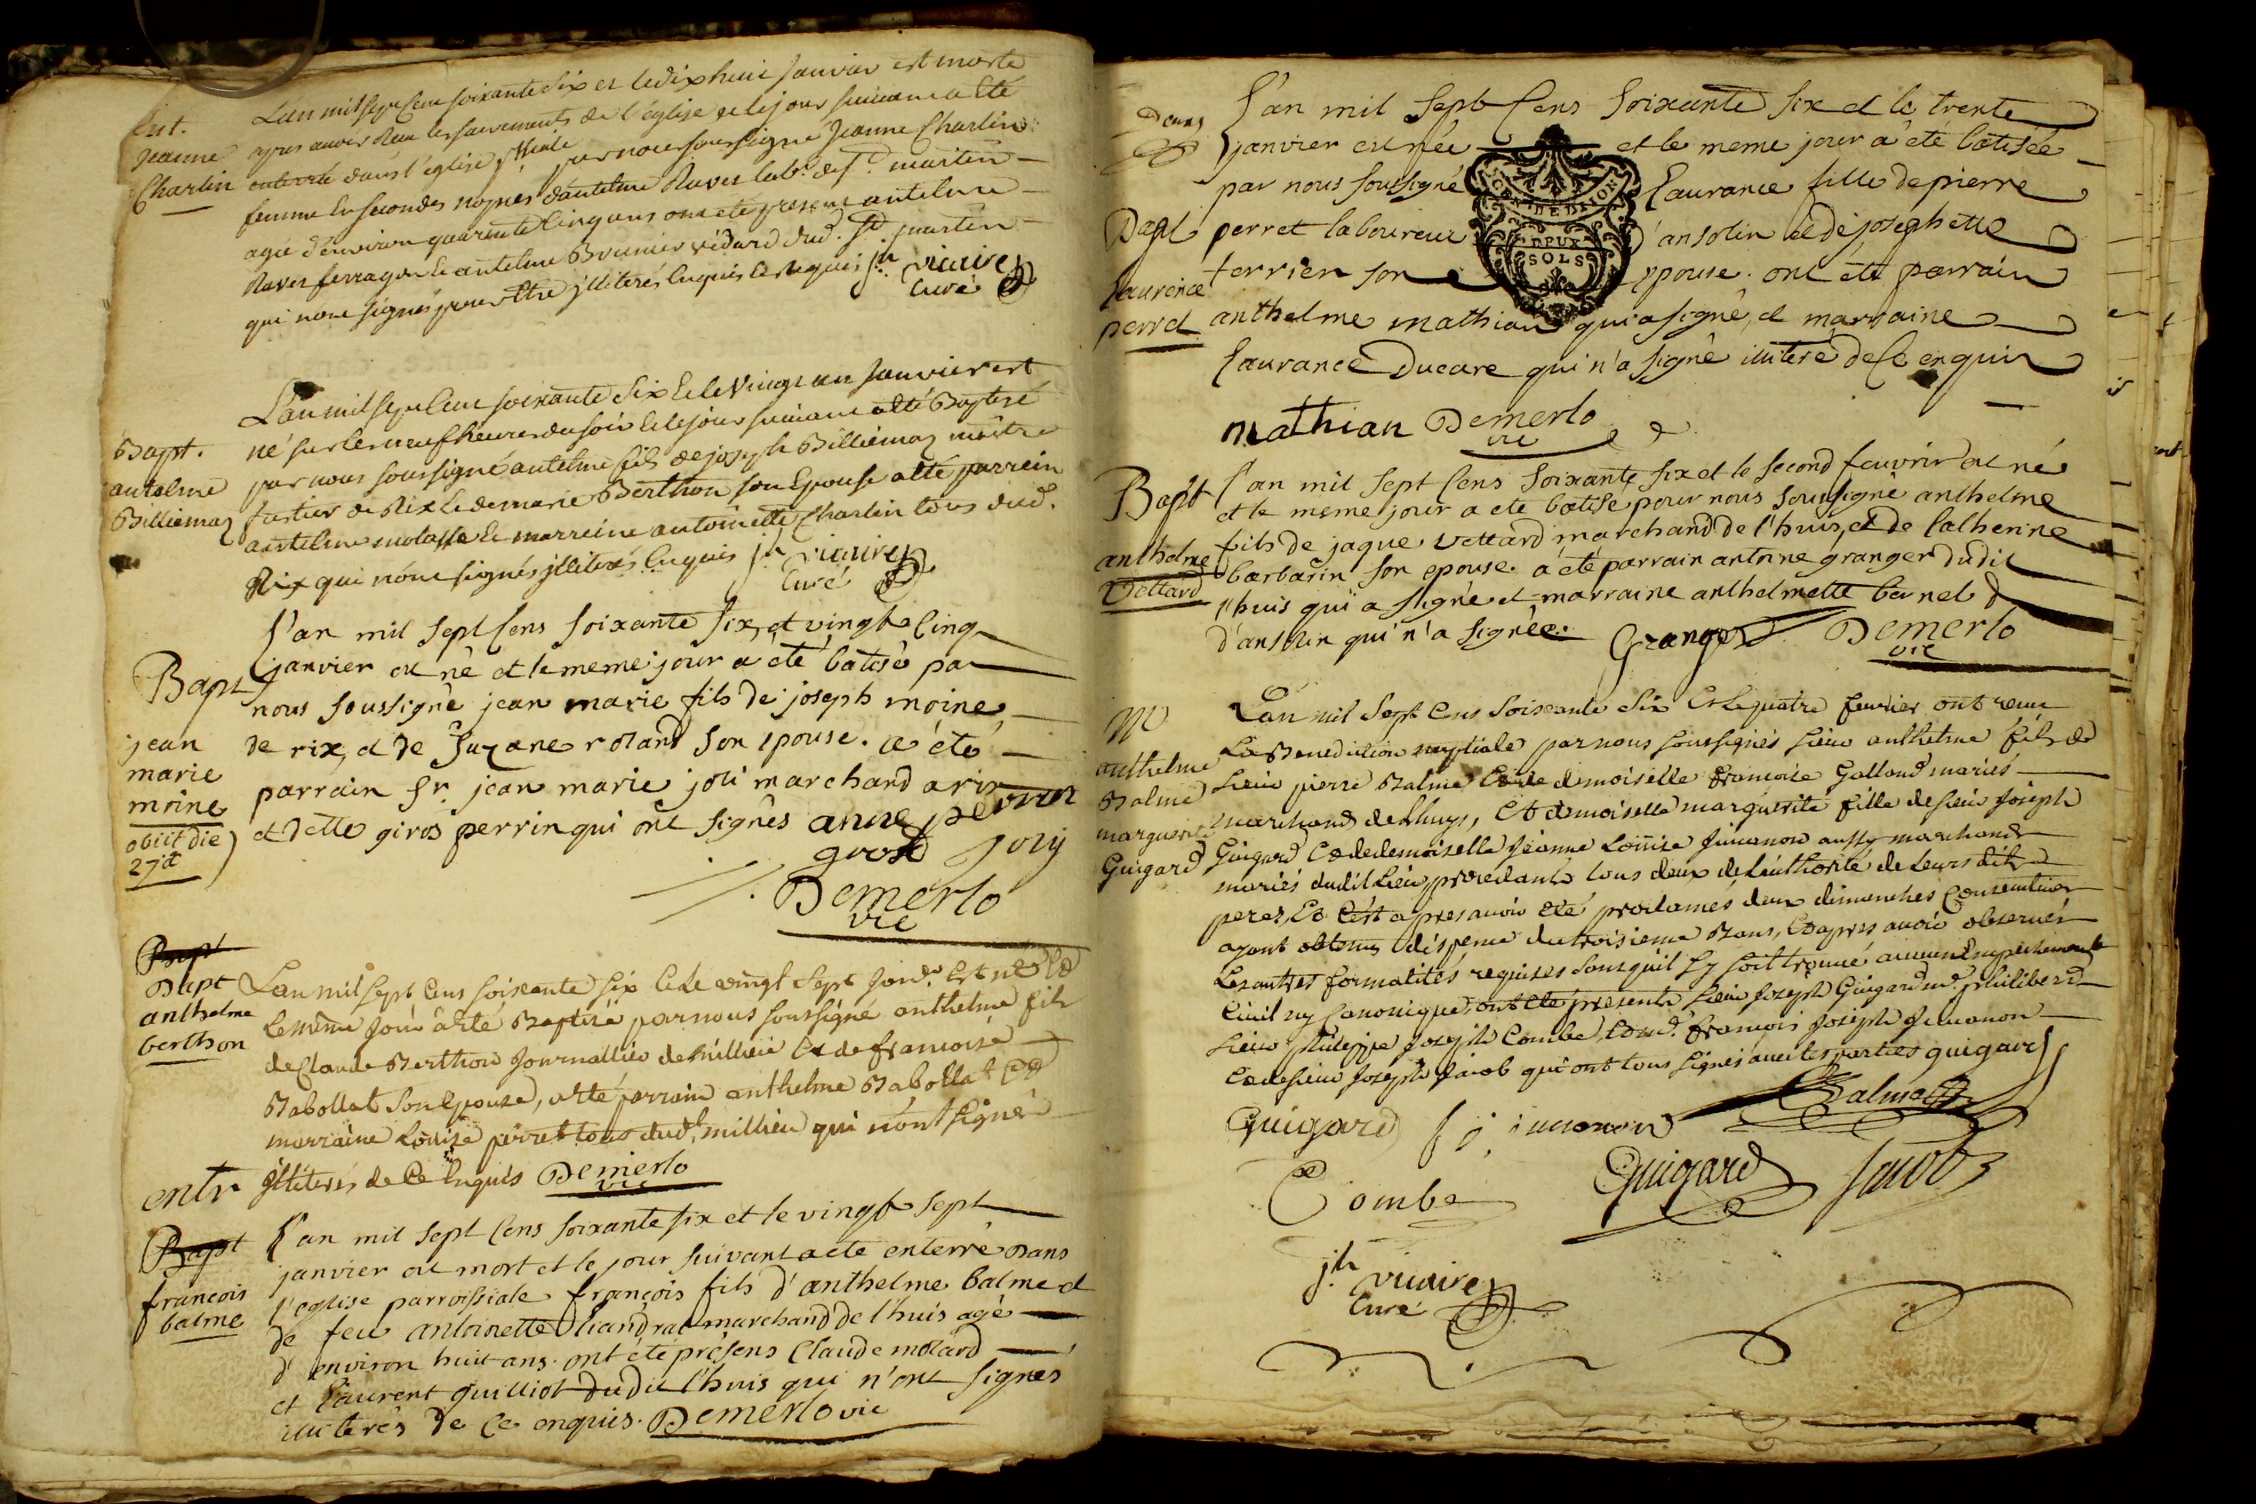 Ent.
jeanne
Charlin
L'an mil sept cens soixante six et le dix huit janvier est morte
apres avoir recu les sacrements de l'église et le jour suivant a été
enterrée dans l'église par nous soussigné jeanne Charlin
femme en secondes nopces d'antelme Ravet lab.r de S.t martin
agée d'environ quarante cinq ans ont été presens antelme
Ravet et antelme Brunier dud. S.t martin
qui n'ont signés pour être jlliterés enquis et requis j.h vicaire
curé
Bapt.
antelme
Billiemaz
L'an mil sept cens soixante six et le vingt un janvier est
né sur les neuf heures du soir et le jour suivant a été Baptisé
par nous soussigné antelme fils de joseph Billiemaz maitre
de Rix et de marie Berthon son Epouse a été parrein
antelme molasse et marreine antoinette Charlin tous dud.
Rix qui n'ont signés jlliterés enquis j.h vicaire
curé
Bapt
jean
marie
moine
obiit die
27 a
L'an mil sept cens soixante six, et vingt cinq
janvier est né et le meme jour a été batisé par
nous soussigné jean marie fils de joseph moine
de rix, et de suzane roland son epouse. a été
parrain sr. jean marie joli marchand a rix
et dette giros perrin qui ont signés anne perrin
gros joly
Demerlo
vic
Bapt
Bapt
anthelme
berthon
L'an mil sept cens soixante six et le vingt sept janv.r est né et
le même jour a été Baptisé par nous soussigné anthelme fils
de Claude Berthon journallier de millieu et de francoise
Rabollat son epouse, a été parrain anthelme Rabollat et
marraine Louise perret tous dud.t millieu qui n'ont signé
jlliterés de ce enquis Demerlo
vic
entr
Bapt
francois
balme
L'an mil sept cens soixante six et le vingt sept
janvier est mort et le jour suivant a été enterré dans
l'eglise parroissiale françois fils d'anthelme balme et
de feu antoinette marchand de l'huis agé
d'environ huit ans. ont été présens Claude molard
et Laurent guilliot dudit l'huis qui n'ont signés
illiterés de ce enquis. Demerlo vic
Bapt
Laurence
perret
L'an mil sept cens soixante six et le trente
janvier est née et le meme jour a été batisée
par nous soussigné Laurance fille de pierre
perret laboureur d'ansolin et de josephette
terrien son epouse. ont été parrain
anthelme mathian qui a signé, et marraine
Laurance Ducare qui n'a signé illiteré de ce enquis
GEN. DE DIJON
DEUX
SOLS
mathian Demerlo
vic
Bapt
anthelme
Vettard
L'an mil sept cens soixante six et le second feuvrir est né
et le meme jour a été batisé pour nous soussigné anthelme
fils de jaque vettard marchand de l'huis, et de Catherine
barbarin son epouse. a été parrain antoine granger dudit
l'huis qui a signé et marraine anthelmette bernet
d'ansolin qui n'a signée. Granger Demerlo
vic
M
anthelme
Balme
marguerite
Guigard
L'an mil sept cens soixante six et le quatre fevrier ont recu
la Benediction nuptiale par nous soussignés sieur anthelme fils de
sieur pierre Balme et de demoiselle francoise Galland mariés
marchand de Lhuys, et demoiselle marguerite fille de sieur Joseph
Guigard et de demoiselle jeanne Louise jumanon aussy marchand
mariés dudit Lieu, procedants tous deux de l'authorité de leurs dits
peres, et c'est apres avoir été proclamés deux dimenches consecutives
ayant obtenu dispense du troisieme Bans, et apres avoir observé
les autres formalités requises sans qu'il s'y soit trouvé aucun empechement
civil ny canonique, ont été presents sieur Joseph Guigard m.d philiberd
sieur philippe joseph Combe, françois joseph jumanon
et de sieur joseph jacob qui ont tous signés avec les parties guigard
Guigard f j jumanon Balme
Combe Guigard Jacob
j.h vicaire
curé